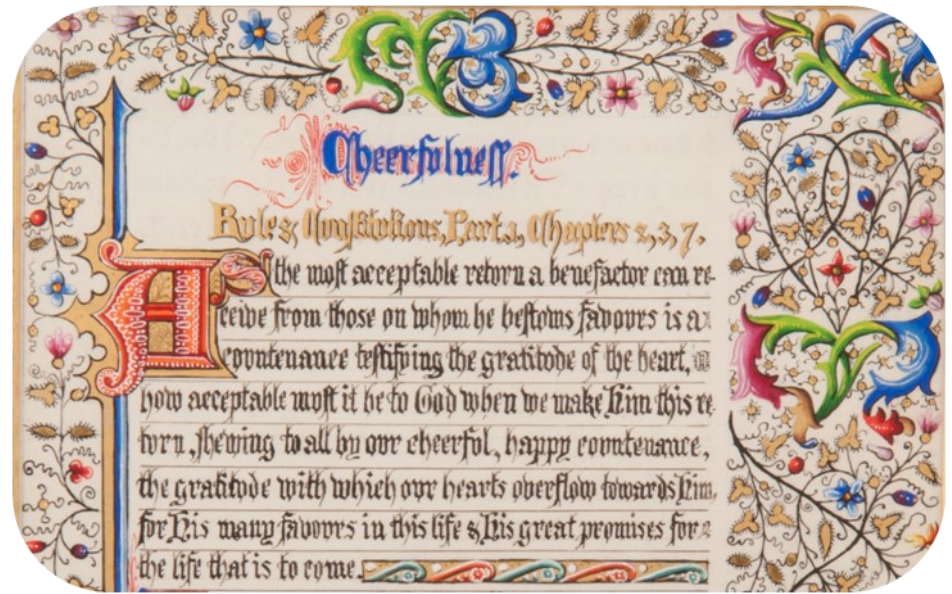 Cheerfulness.
Rule & Constitutions, Part.1, Chapters 2,3,7.
AS the most acceptable return a benefactor can re-
ceive from those on whom he bestows favours is a
countenance testifying the gratitude of the heart,
how acceptable must it be to God when we make Him this re
turn, shewing to all by our cheerful, happy countenance,
the gratitude with which our hearts overflow towards Him,
for His many favours in this life & His great promises for
the life that is to come.